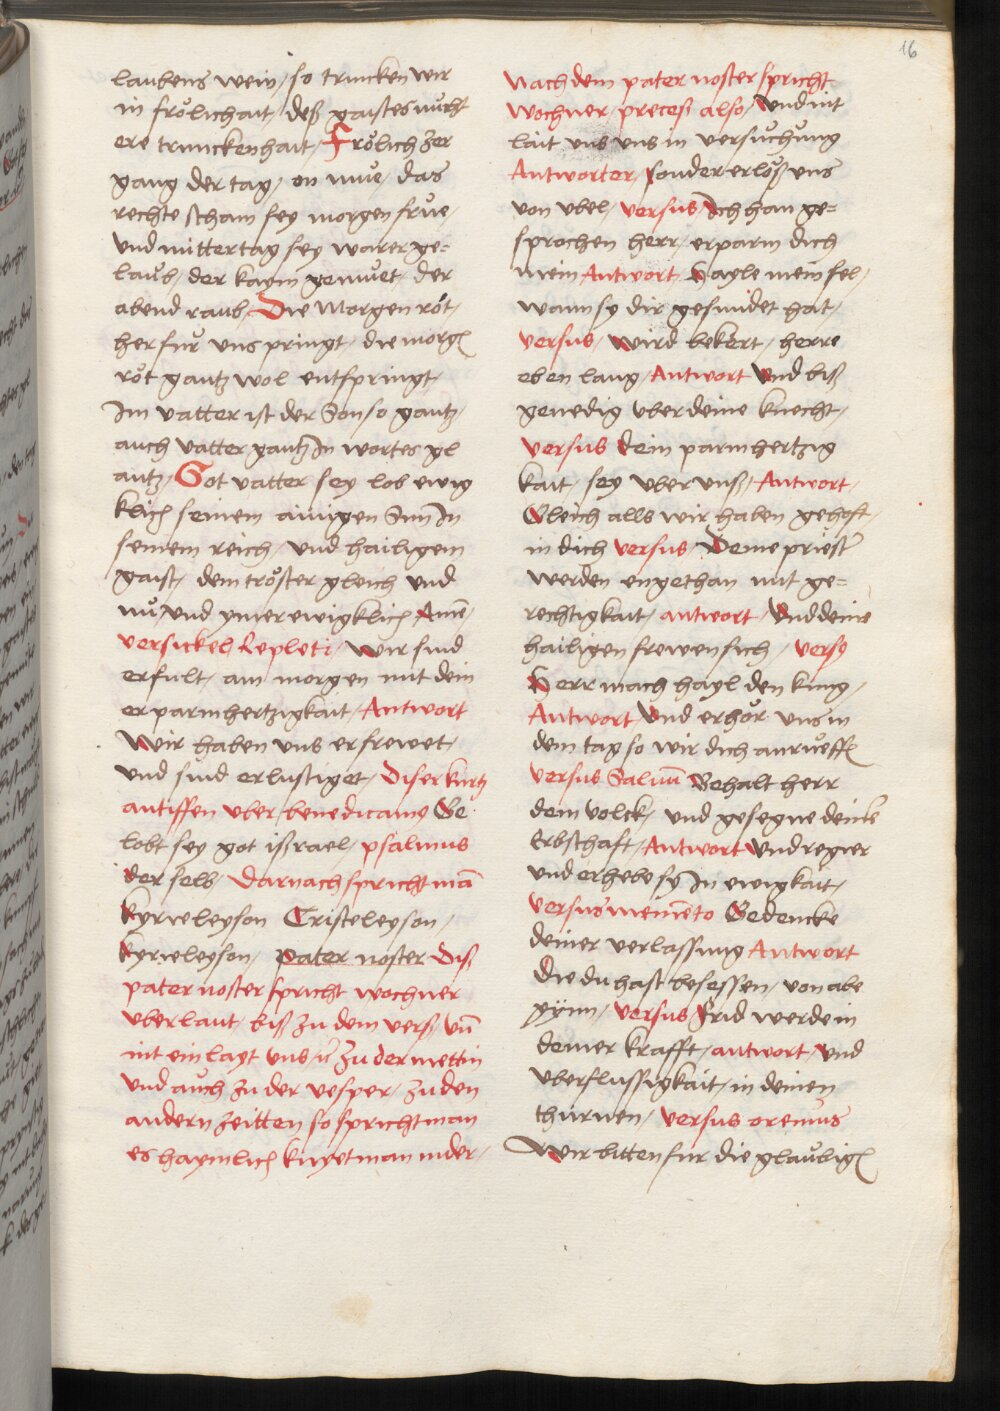 16
laubens wein / so trincken wir
in frölichait / deß gaistes nücht
ere trinckenhait / Frölich zer
gang der tag / on müe / das
rechte scham sey morgen frue /
Und mittertag sey warer ge=
laub / der kaym gemuet / der
abend raub / Die Morgen röt /
herfür uns springt / die morgen
röt gantz wol entspringt /
Im vatter ist der Son so gantz /
auch vatter gantz In wortes gl
antz / Got vatter sey lob ewig
klich seinem ainigen Sun In
seinem reich / und hailigem
gaist / dem tröster gleich und
nu / und ymer ewigklich Ame /
versickel Repleti / Wir sind
erfült / am morgen mit dein
erparmhertzigkait / Antwort
Wir haben uns erfrewet /
und sind erlustiget / Diser kurtz
antiffen uber / benedicamus Ge
lobt sey got israel / psalmus
der selb / Darnach spricht man
kyrieleyson Cristeleyson /
kyrieleyson / pater noster Diß
pater noster spricht wochner
uberlaut / biß zu dem verß / Un
nit einlayt uns / zu der mettin
Und auch zu der vesper / zu den
andern zeitten so spricht man
es haymlich knyet man nider /
Nach dem pater noster spricht
Wochner / preces also / Und nit
lait uns uns in versuchung
Antworter / sonder erlöß uns
von ubel / versus / Ich han ge=
sprochen herr / erparm dich
mein Antwort Hayle mein sel /
wann sy dir gesundet hat /
versus / Wird bekert / herre
eben lang / Antwort Und biß
genedig uber deine knecht /
versus Dein parmhertzig
kait / sey uber unß / Antwort /
Gleich alls wir haben gehoft /
in dich versus / Deine priester
werden engethan mit ge=
rechtigkait / antwort / Und deine
hailigen frewen sich / verss
Herr mach hayl den kung /
Antwort Und erhör uns in
dem tag so wir dich anrueffen
versus Saluum Behalt herr
dein volck / und gesegne deine
Erbschaft / Antwort Und regier
und erhebe sy In ewigkait /
versus memento Gedencke
deiner verlassung Antwort
Die du hast besessen / von abe
gynn / versus Frid werde in
deiner krafft / antwort / Und
uberflussigkait / in deinen
thurnen / versus oremus
Wir bitten für die glaubigen